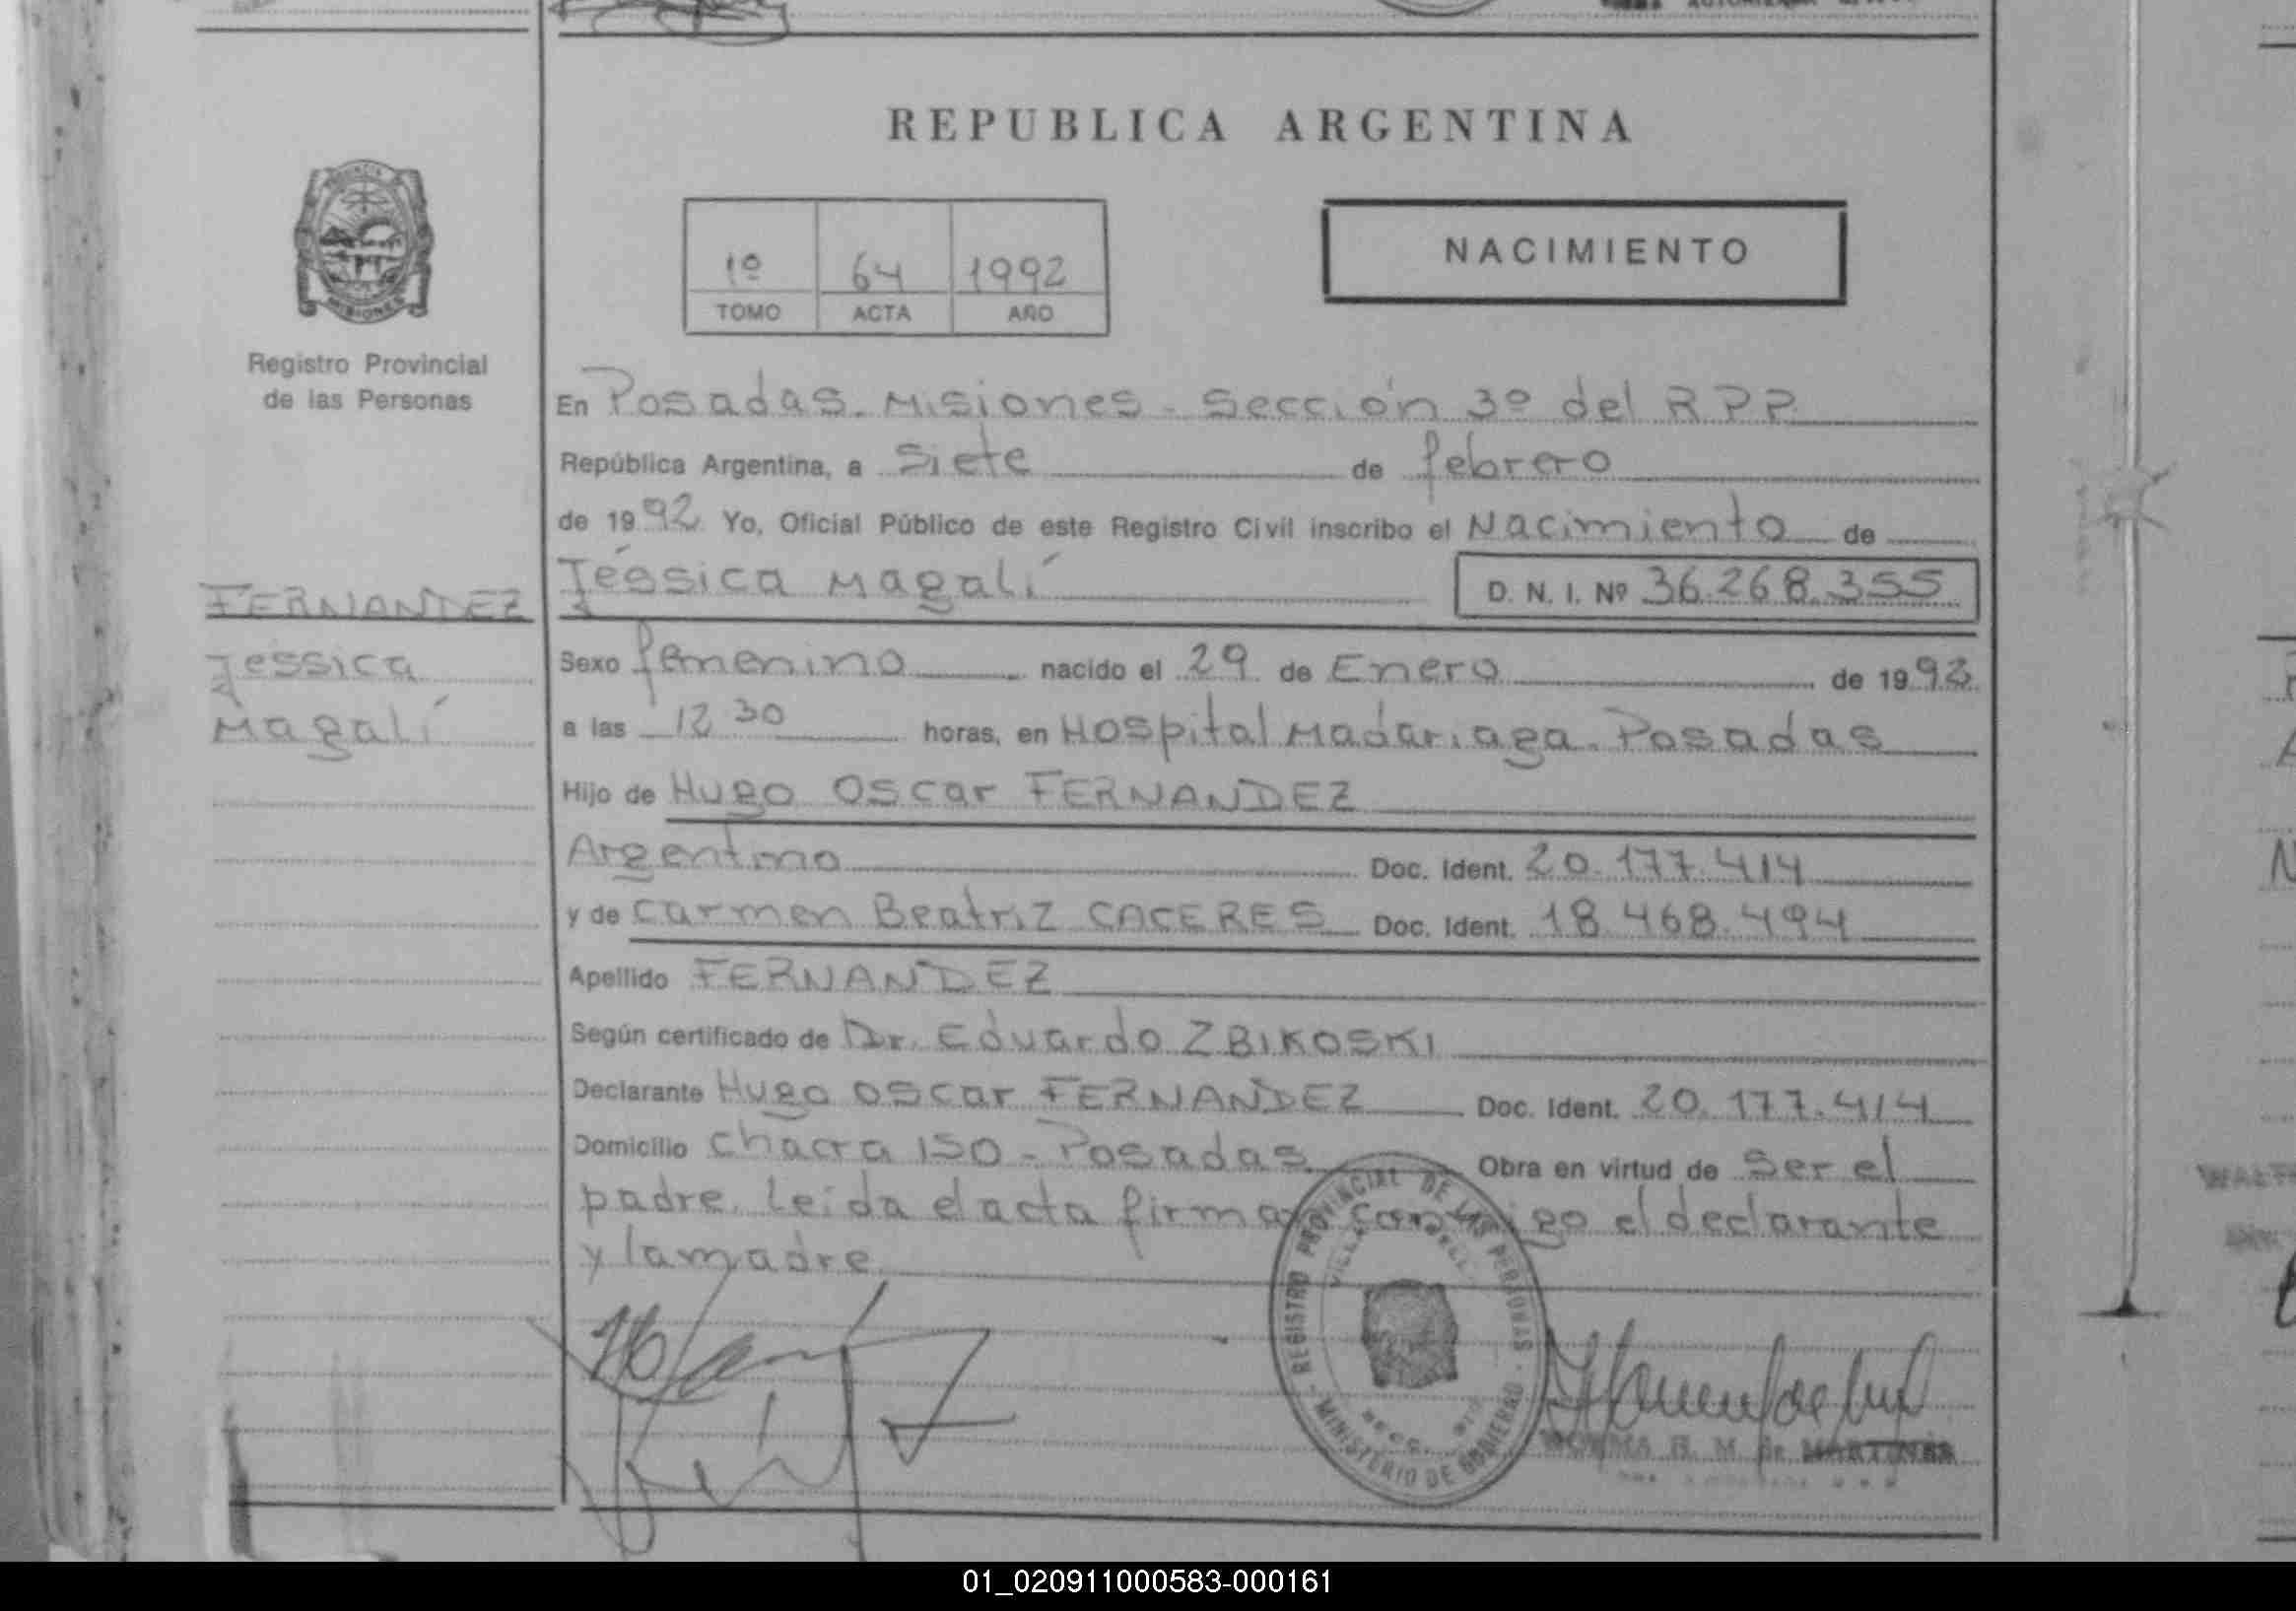 REPUBLICA ARGENTINA
1º 64 1992
TOMO ACTA AÑO
NACIMIENTO
Registro Provincial
de las Personas
En Posadas. Misiones - Sección 3º del RPP
República Argentina, a siete de febrero
de 1992 Yo, Oficial Público de este Registro Civil inscribo el Nacimiento de
Jéssica Magalí D. N. I. Nº 36.268.355
FERNANDEZ
Jessica
Magalí
Sexo femenino nacido el 29 de Enero de 1992
a las 12 30 horas, en Hospital Madariaga. Posadas
Hijo de Hugo Oscar FERNANDEZ
Argentino Doc. Ident. 20.177.414
y de Carmen Beatriz CACERES Doc. Ident. 18.468.494
Apellido FERNANDEZ
Según certificado de Dr. Eduardo ZBIKOSKI
Declarante Hugo Oscar FERNANDEZ Doc. Ident. 20.177.414
Domicilio Chacra 150 - Posadas Obra en virtud de ser el
padre. Leída el acta firman conmigo el declarante
y la madre
REGISTRO PROVINCIAL DE LAS PERSONAS
MINISTERIO DE GOBIERNO
NORMA H. M. de MARTINES
01_020911000583-000161